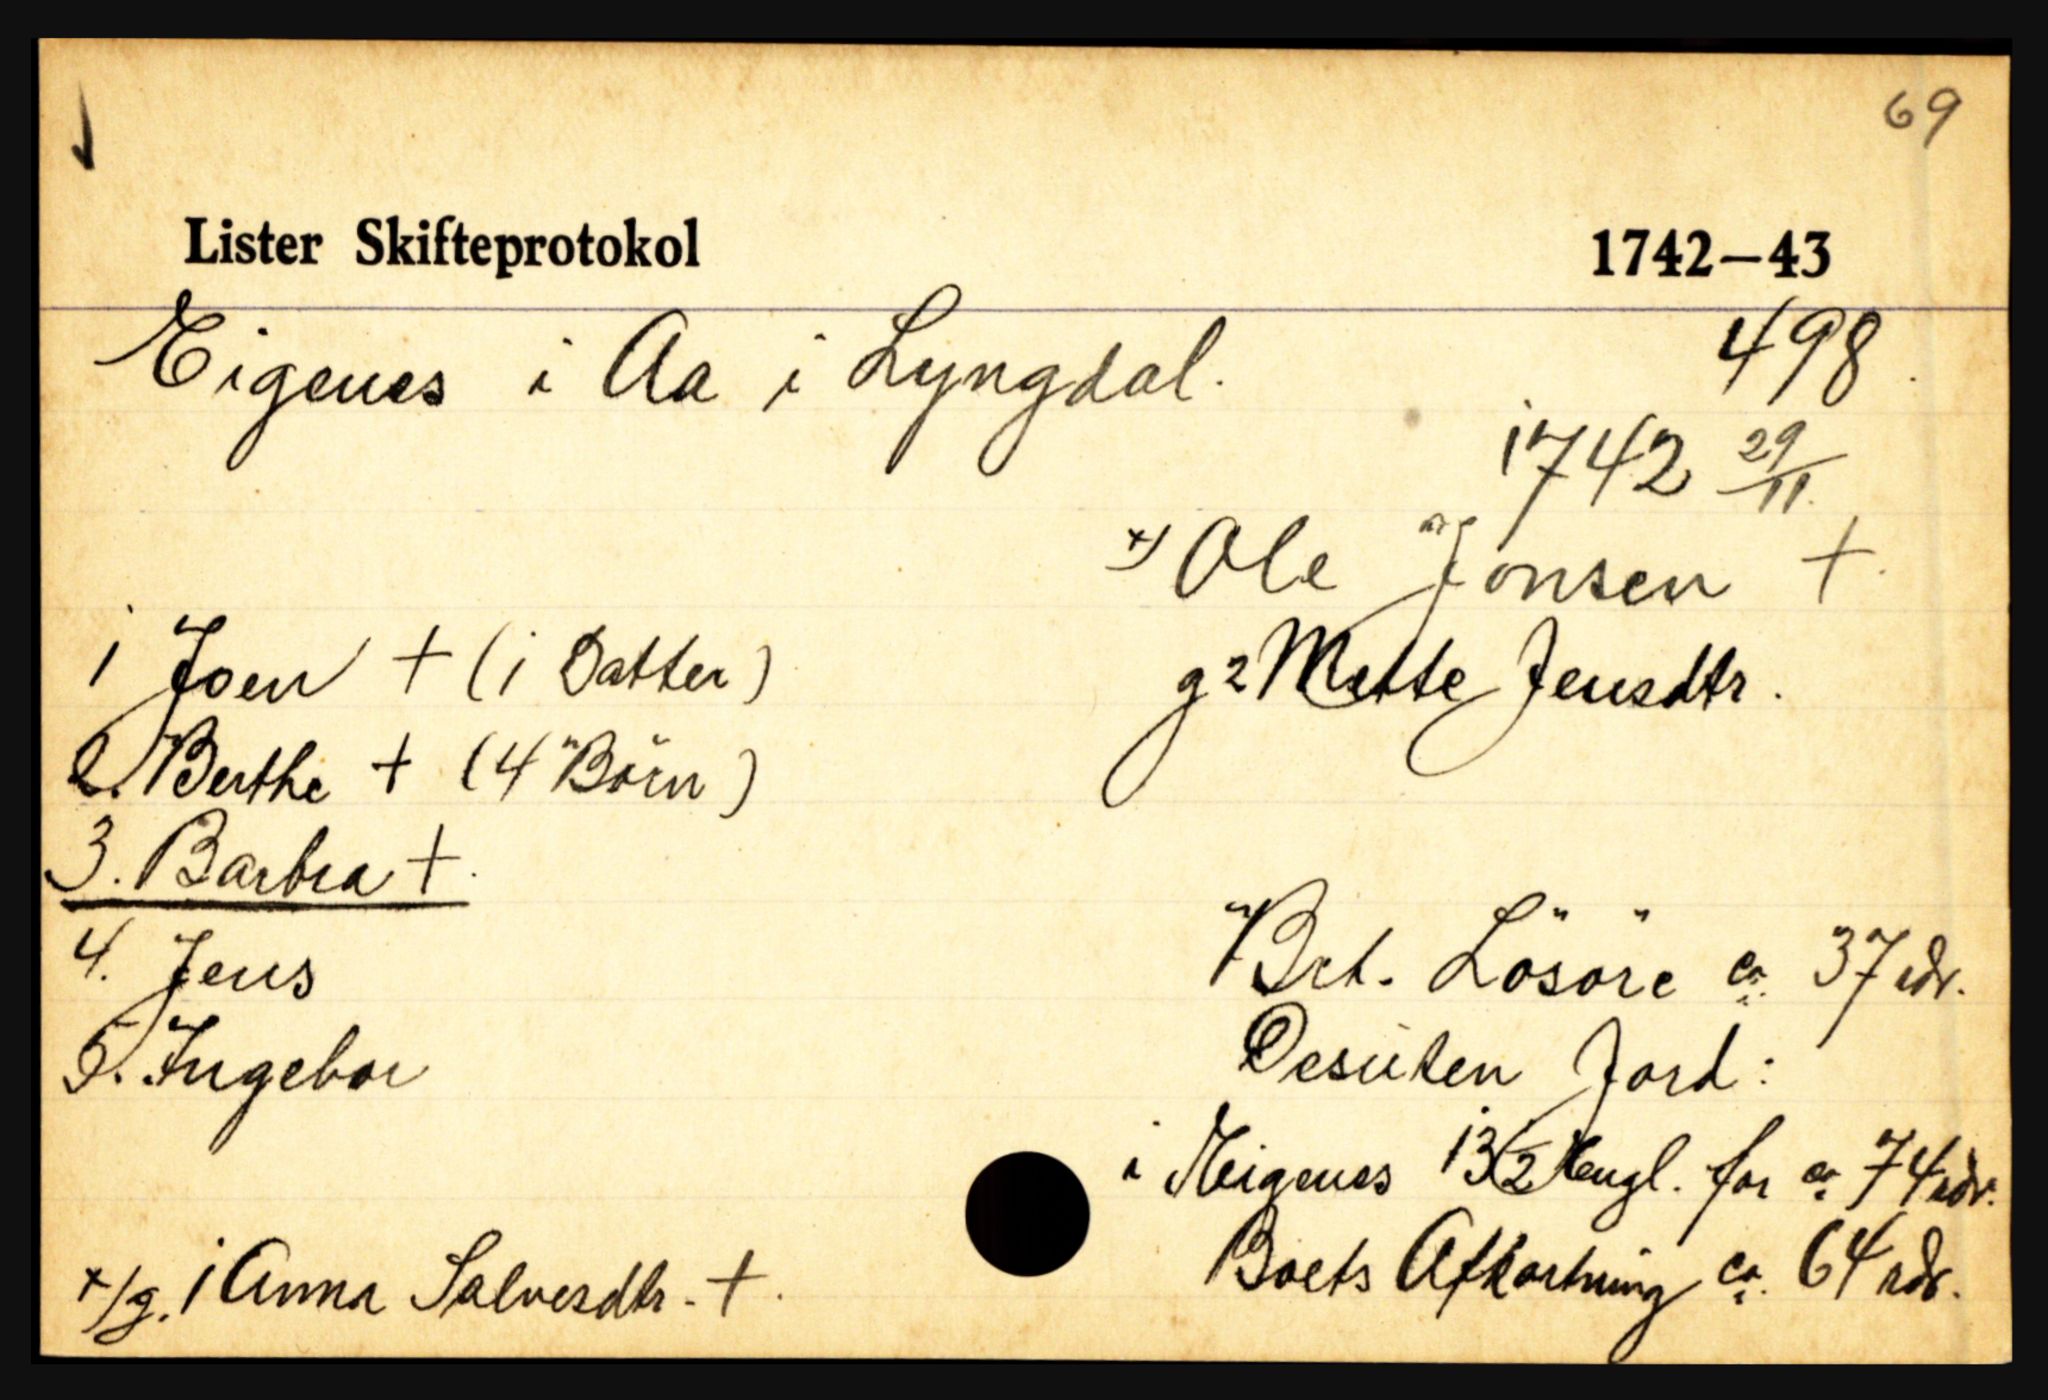 69
Lister Skifteprotokol 1742–43
Eigenes i Aa i Lyngdal. 498.
1742 29/11.
x) Ole Jonsen +.
g 2 Mette Jensdtr.
1 Joen + (1 Datter)
2. Berthe + (4 Börn)
3. Barbra +.
4. Jens
5. Ingebor
Brt. Lösöre ca. 37 rdr.
Desuten Jord:
i Eigenes 13 1/2 Engl. for ca. 74 rdr.
Boets Afkortning ca. 64 rdr.
x/g. 1 Anna Salvesdtr. +.